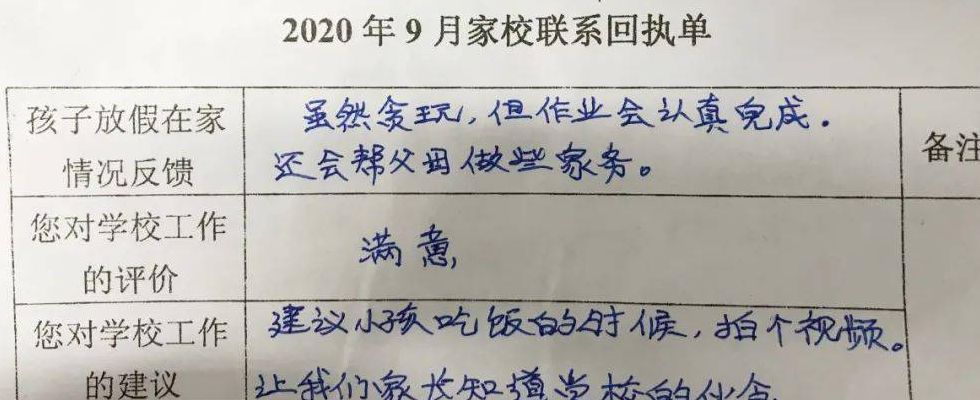 2020 年 9 月家校联系回执单
孩子放假在家
情况反馈
虽然贪玩，但作业会认真完成.
还会帮父母做些家务。
备注
您对学校工作
的评价
满意,
您对学校工作
的建议
建议小孩吃饭的时候，拍个视频。
让我们家长知道学校的伙食